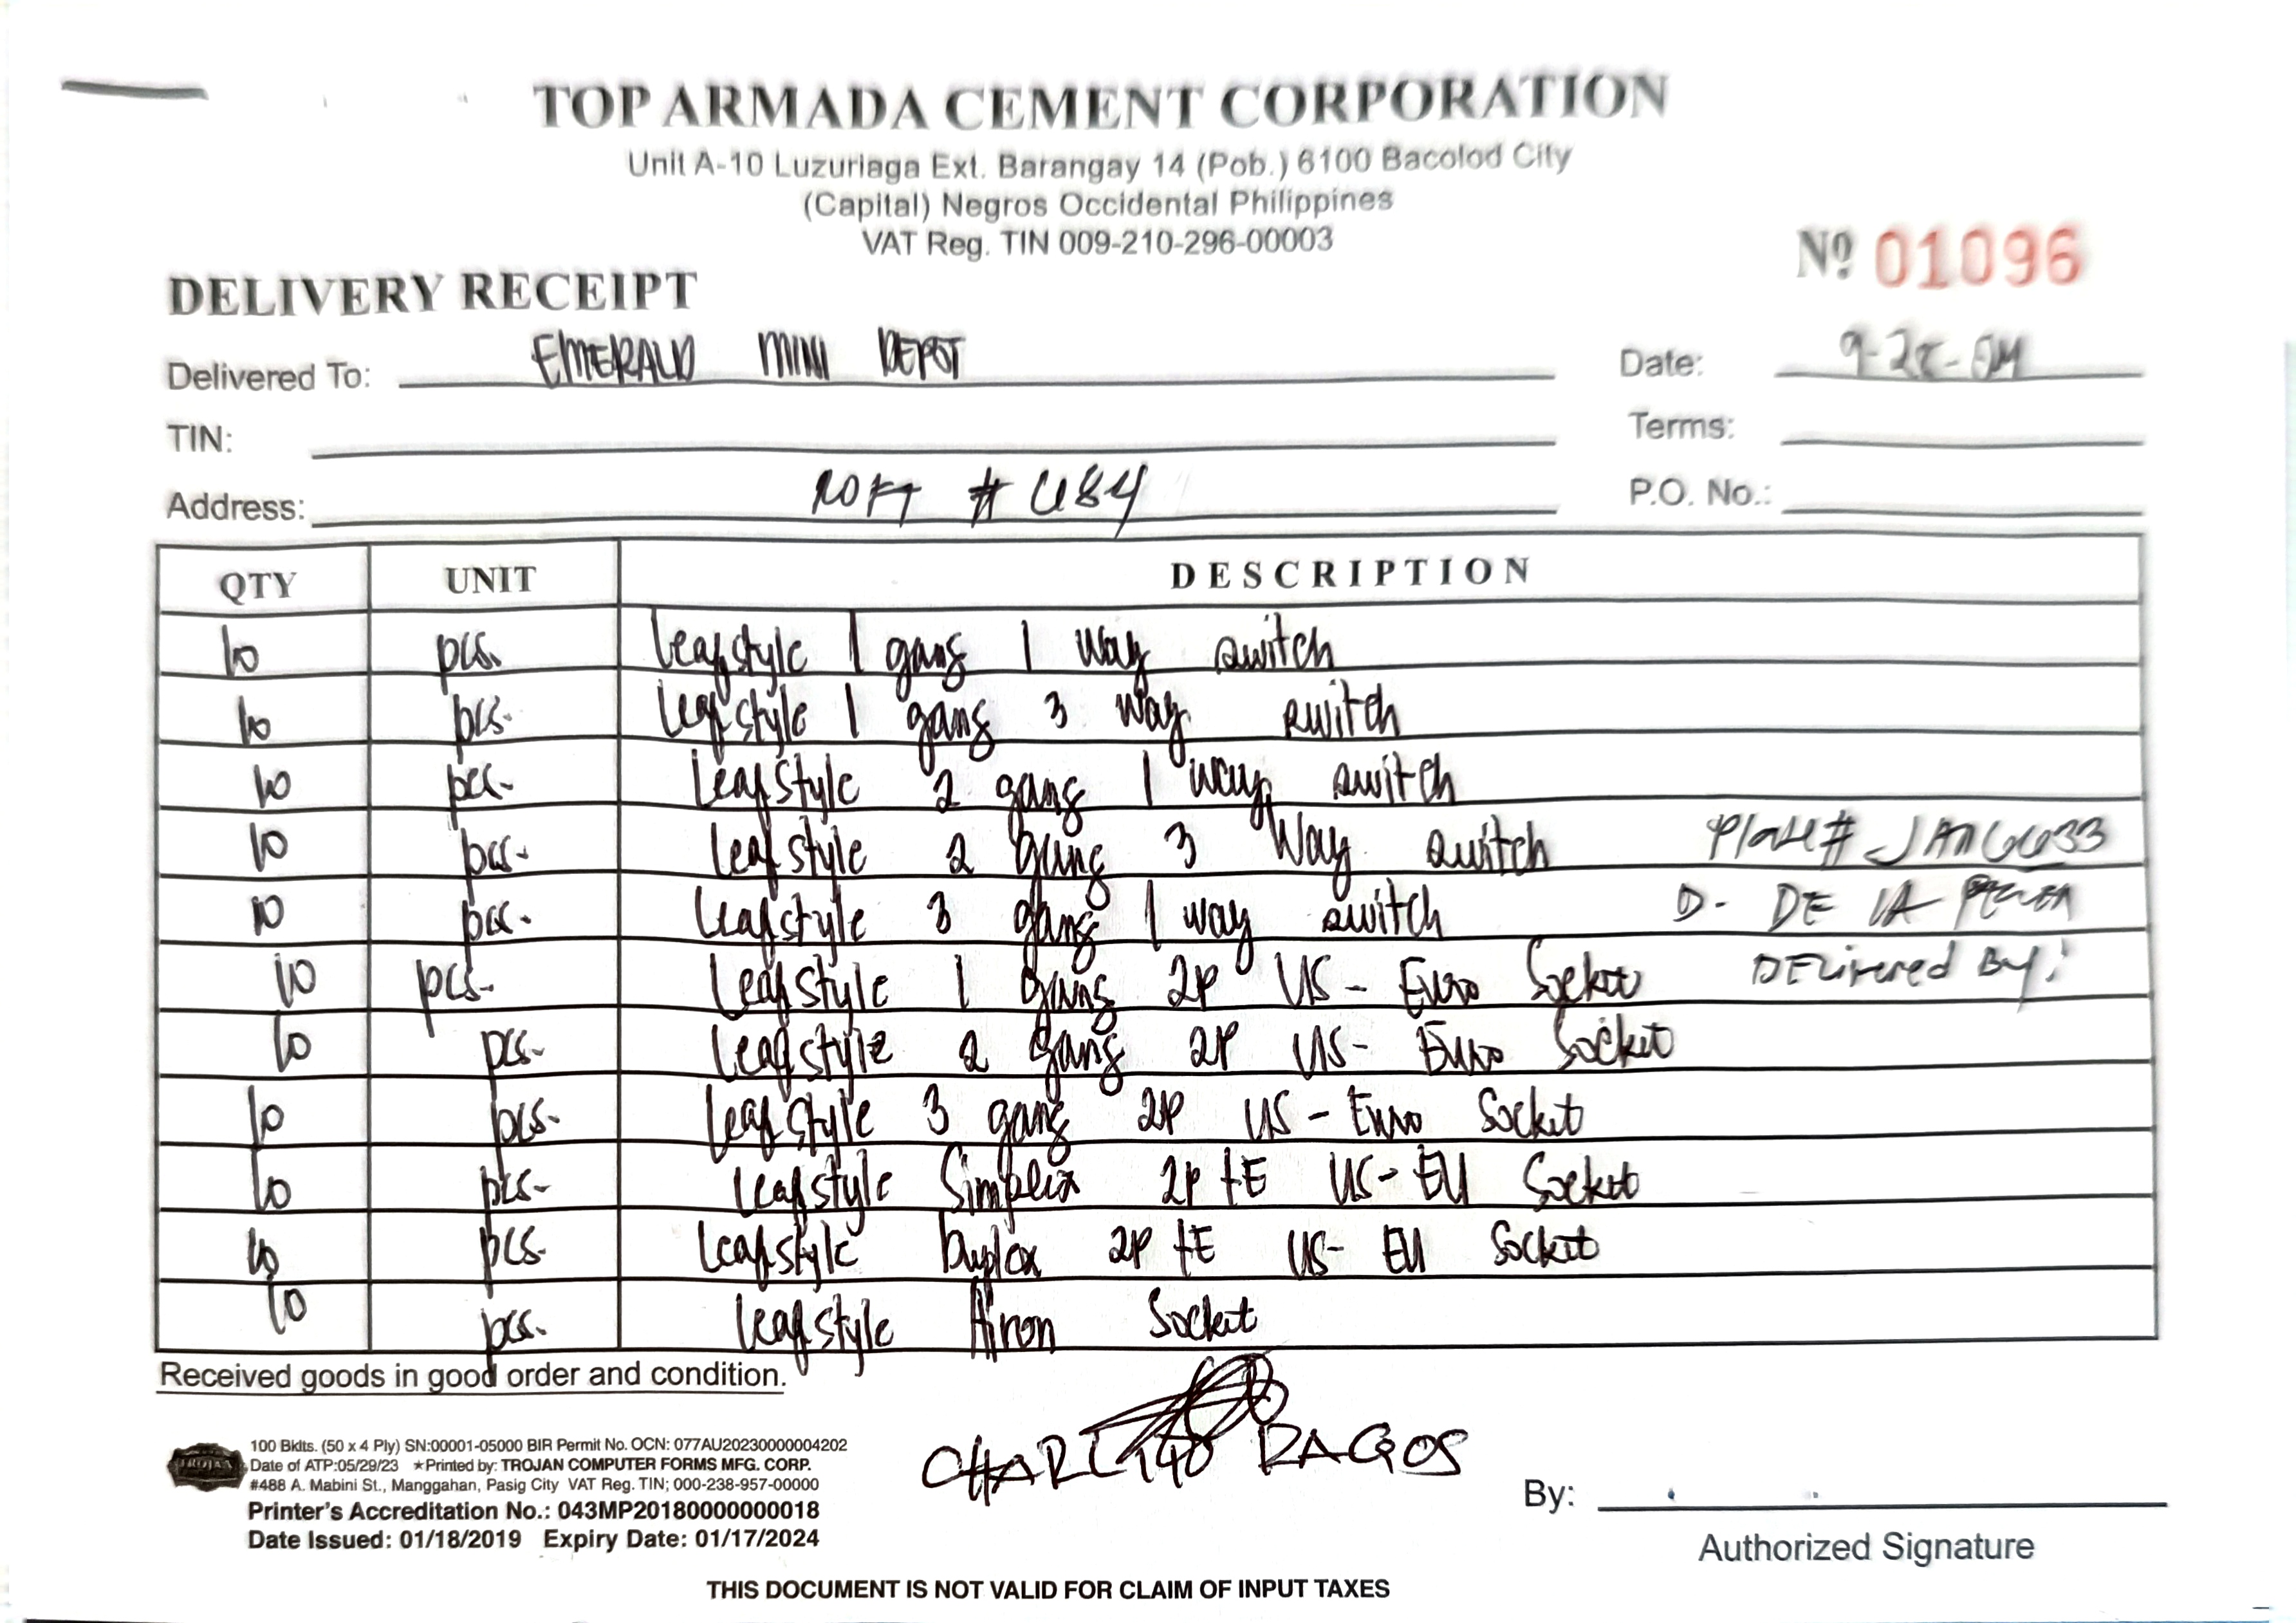 TOP ARMADA CEMENT CORPORATION
Unit A-10 Luzuriaga Ext. Barangay 14 (Pob.) 6100 Bacolod City
(Capital) Negros Occidental Philippines
VAT Reg. TIN 009-210-296-00003
DELIVERY RECEIPT
Nº 01096
Delivered To: EMERALD MINI DEPOT
Date:
TIN:
Terms:
Address: #
P.O. No.:
QTY UNIT DESCRIPTION
10 pcs. Leafstyle 1 gang 1 way switch
10 pcs. Leafstyle 1 gang 3 way switch
10 pcs. Leafstyle 2 gang 1 way switch
10 pcs. Leafstyle 2 gang 3 Way switch Plate#
10 pcs. Leafstyle 3 gang 1 way switch D. DE LA
10 pcs. Leafstyle 1 gang 2P US - Euro Socket DELivered By:
10 pcs. Leafstyle 2 gang 2P US - Euro Socket
10 pcs. Leafstyle 3 gang 2P US - Euro Socket
10 pcs. Leafstyle Simplex 2P +E US - EU Socket
10 pcs. Leafstyle Duplex 2P +E US - EU Socket
10 pcs. Leafstyle Socket
Received goods in good order and condition.
TROJAN
100 Bklts. (50 x 4 Ply) SN:00001-05000 BIR Permit No. OCN: 077AU20230000004202
Date of ATP:05/29/23 ★Printed by: TROJAN COMPUTER FORMS MFG. CORP.
#488 A. Mabini St., Manggahan, Pasig City VAT Reg. TIN; 000-238-957-00000
Printer's Accreditation No.: 043MP20180000000018
Date Issued: 01/18/2019 Expiry Date: 01/17/2024
By:
Authorized Signature
THIS DOCUMENT IS NOT VALID FOR CLAIM OF INPUT TAXES